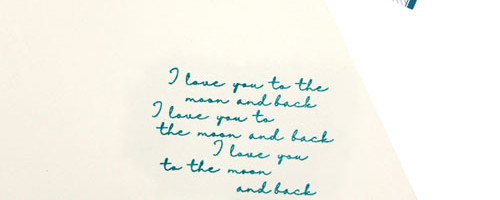 I love you to the
moon and back
I love you to
the moon and back
I love you
to the moon
and back